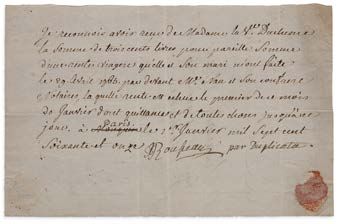 Je reconnois avoir receu de Madame la Vve Duchesne
la somme de trois cents livres, pour pareille somme
d'une rente viagere qu'elle et son mari m'ont faite
le 29 Avril 1765. par devant Me et son confrere
Notaires, la quelle rente est echue le premier de ce mois
de Janvier dont quittance et de toute chose jusqu'à ce
jour, à Paris le 1er Janvier mil sept cent
soixante et onze JJRousseau par Duplicata